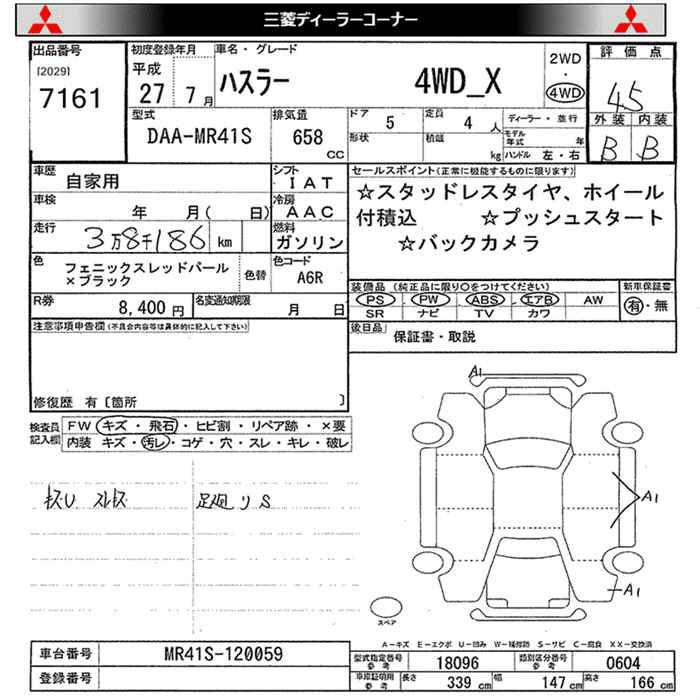 三菱ディーラーコーナー
出品番号
[2029]
7161
初度登録年月
平成
27 7月
車名・グレード
ハスラー 4WD_X
2WD
・
4WD
評価点
4.5
外装 内装
B B
型式
DAA-MR41S
排気量
658
CC
ドア 5
定員 4 人
形状
積載
kg
ディーラー・並行
モデル年式 年
ハンドル 左・右
車歴
自家用
シフト
IAT
車検
年 月( 日)
冷房
AAC
走行
3万8千186 km
燃料
ガソリン
色
フェニックスレッドパール
×ブラック
色替
色コード
A6R
R券
8,400 円
名変通知期限
月 日
セールスポイント(正常に機能するものに限ります)
☆スタッドレスタイヤ、ホイール
付積込 ☆プッシュスタート
☆バックカメラ
装備品 (純正品に限り○をつけてください)
PS PW ABS エアB AW
SR ナビ TV カワ
新車保証書
有・無
後日品
保証書・取説
注意事項申告欄(不具合内容等は具体的に記入して下さい)
修復歴 有 [箇所 ]
検査員
記入欄
FW キズ・飛石・ヒビ割・リペア跡・×要
内装 キズ・汚レ・コゲ・穴・スレ・キレ・破レ
キズU スレキズ
足廻りS
A1
A1
A1
スペア
A-キズ E-エクボ U-凹み W-補修跡 S-サビ C-腐食 XX-交換済
車台番号
MR41S-120059
登録番号
型式指定番号
参考
18096
類別区分番号
参考
0604
車庫証明用
参考
長さ 339 cm
幅 147 cm
高さ 166 cm